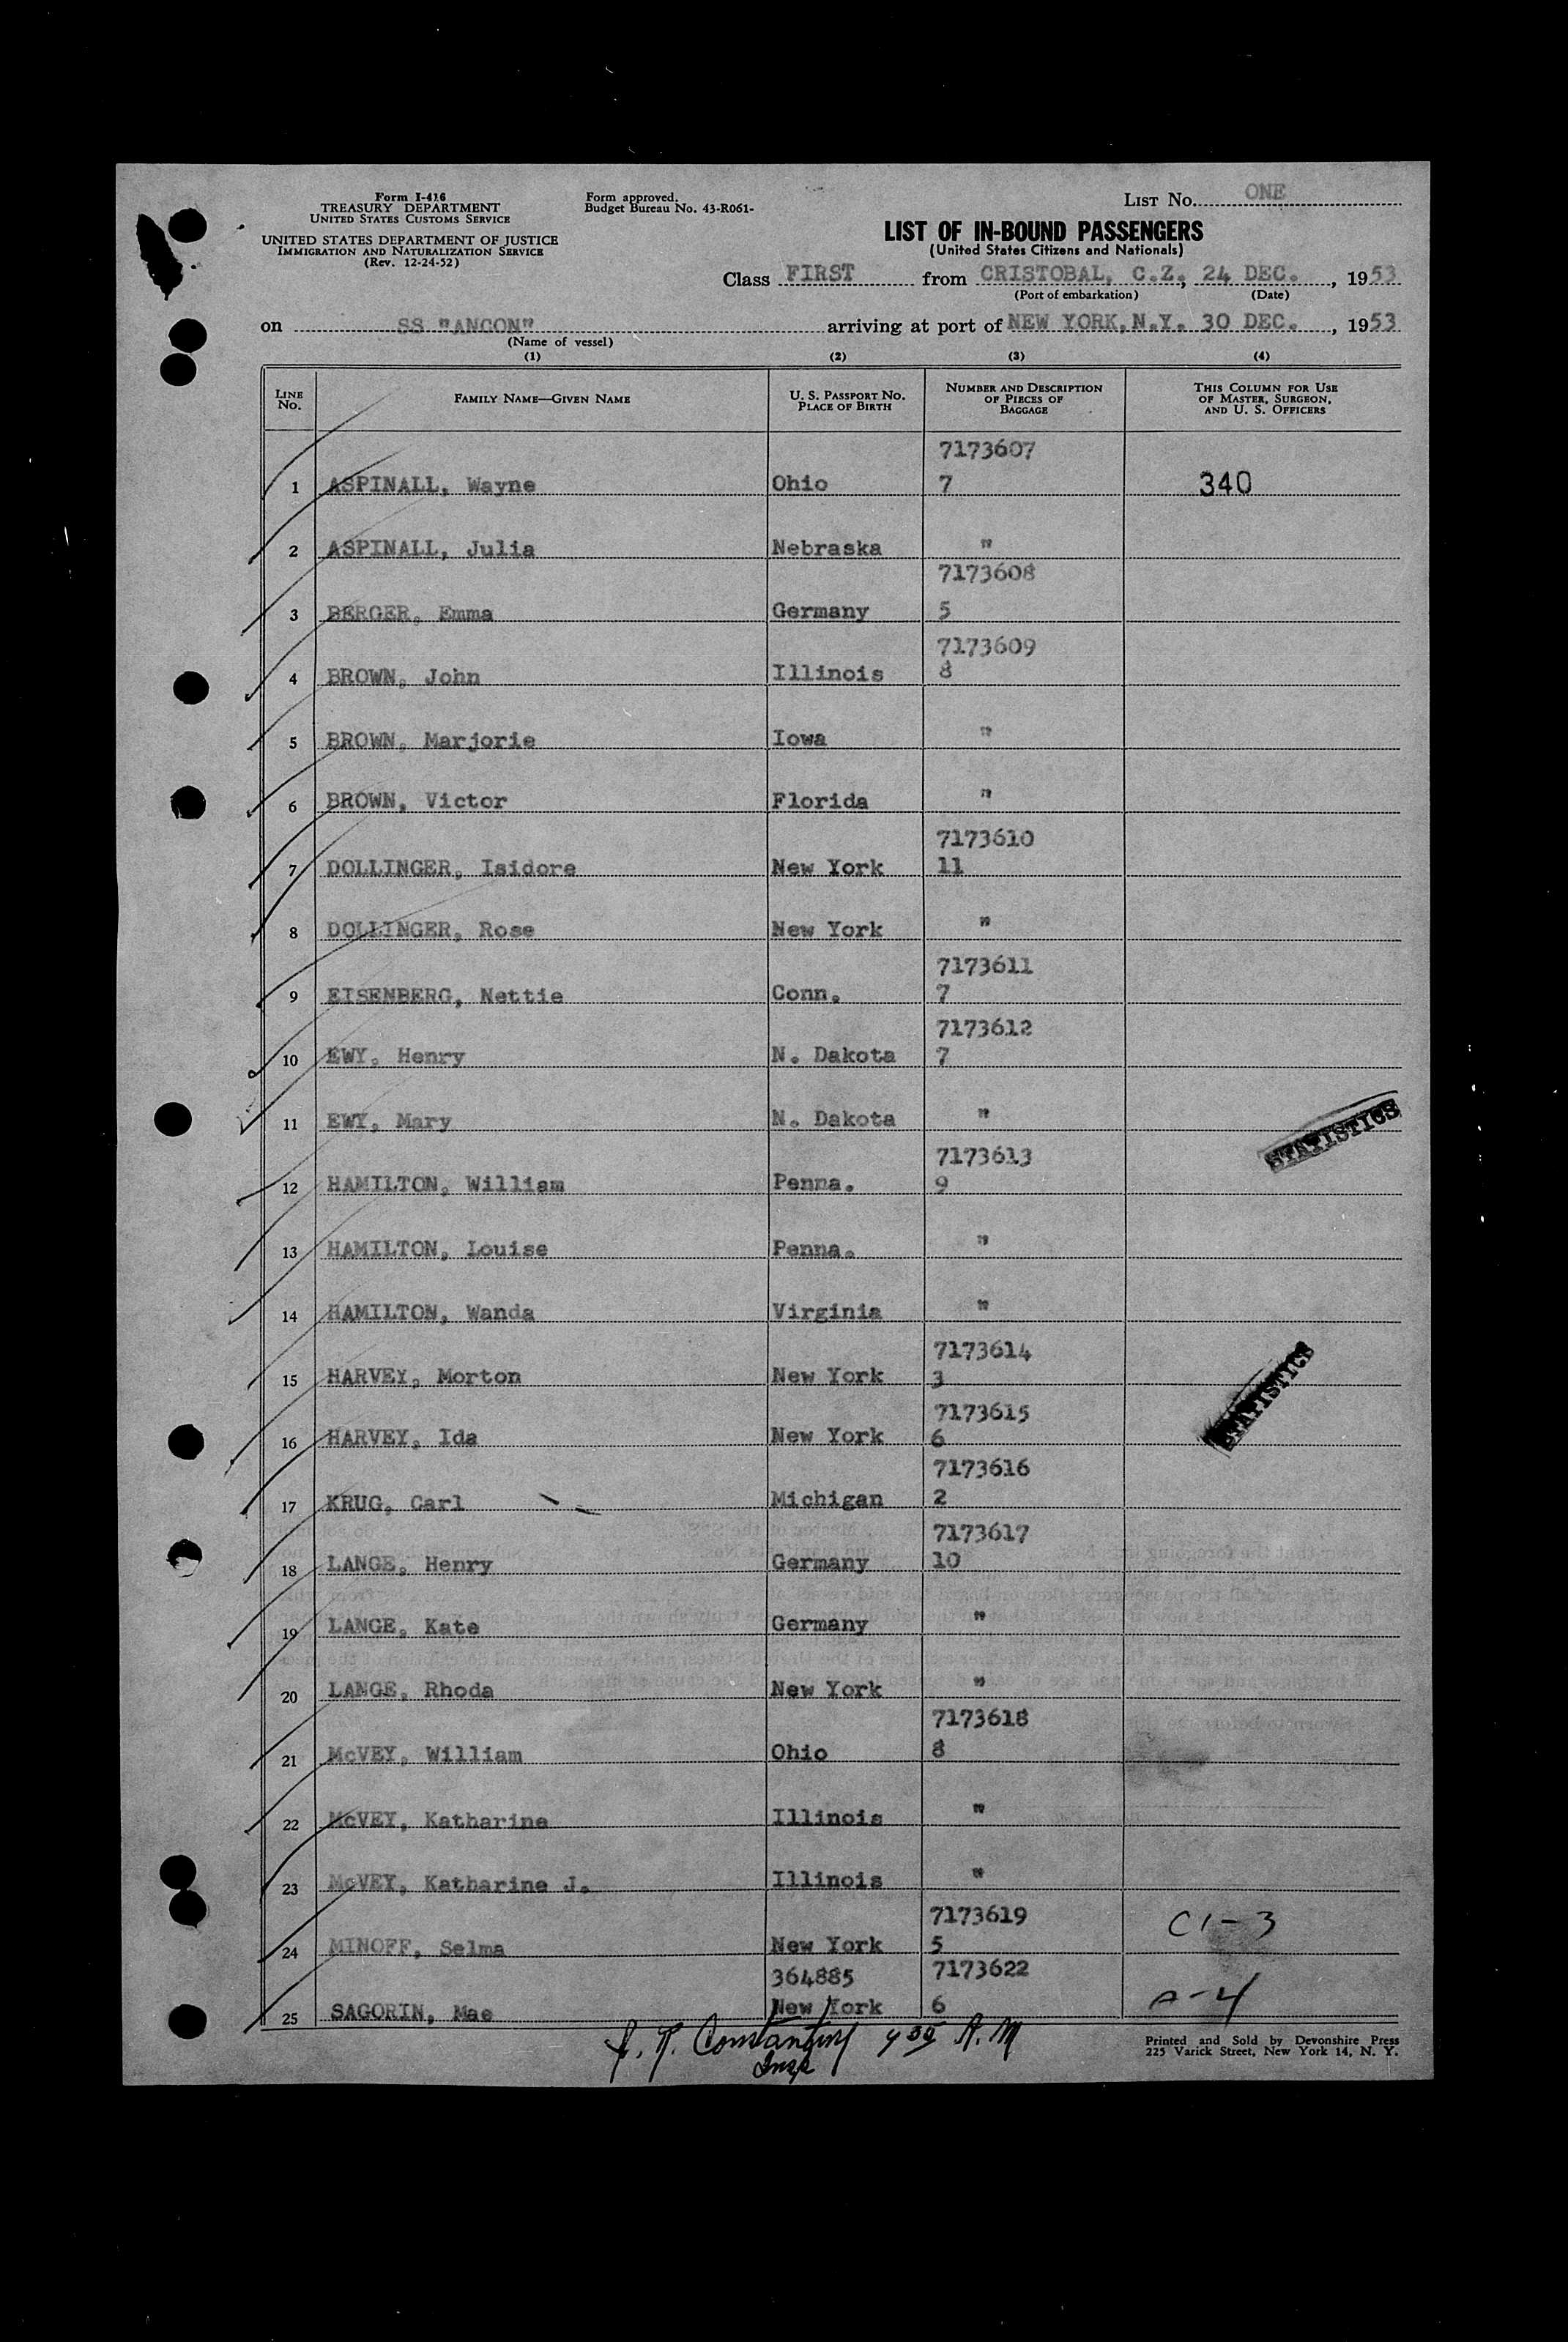 Form I-416
TREASURY DEPARTMENT
UNITED STATES CUSTOMS SERVICE
UNITED STATES DEPARTMENT OF JUSTICE
IMMIGRATION AND NATURALIZATION SERVICE
(Rev. 12-24-52)
Form approved.
Budget Bureau No. 43-R061-
LIST No. ONE
LIST OF IN-BOUND PASSENGERS
(United States Citizens and Nationals)
Class FIRST from CRISTOBAL, C.Z., 24 DEC., 1953
(Port of embarkation) (Date)
on SS "ANCON" arriving at port of NEW YORK, N.Y. 30 DEC., 1953
(Name of vessel)
(1) (2) (3) (4)
LINE No. FAMILY NAME—GIVEN NAME U. S. PASSPORT NO. PLACE OF BIRTH NUMBER AND DESCRIPTION OF PIECES OF BAGGAGE THIS COLUMN FOR USE OF MASTER, SURGEON, AND U. S. OFFICERS
7173607
1 ASPINALL, Wayne Ohio 7 340
2 ASPINALL, Julia Nebraska "
7173608
3 BERGER, Emma Germany 5
7173609
4 BROWN, John Illinois 8
5 BROWN, Marjorie Iowa "
6 BROWN, Victor Florida "
7173610
7 DOLLINGER, Isidore New York 11
8 DOLLINGER, Rose New York "
7173611
9 EISENBERG, Nettie Conn. 7
7173612
10 EWY, Henry N. Dakota 7
11 EWY, Mary N. Dakota "
STATISTICS
7173613
12 HAMILTON, William Penna. 9
13 HAMILTON, Louise Penna. "
14 HAMILTON, Wanda Virginia "
7173614
15 HARVEY, Morton New York 3
STATISTICS
7173615
16 HARVEY, Ida New York 6
7173616
17 KRUG, Carl Michigan 2
7173617
18 LANGE, Henry Germany 10
19 LANGE, Kate Germany "
20 LANGE, Rhoda New York "
7173618
21 McVEY, William Ohio 8
22 McVEY, Katharine Illinois "
23 McVEY, Katharine J. Illinois "
7173619 C1-3
24 MINOFF, Selma New York 5
364885 7173622
25 SAGORIN, Mae New York 6 A-4
Insp
A.M
Printed and Sold by Devonshire Press
225 Varick Street, New York 14, N. Y.